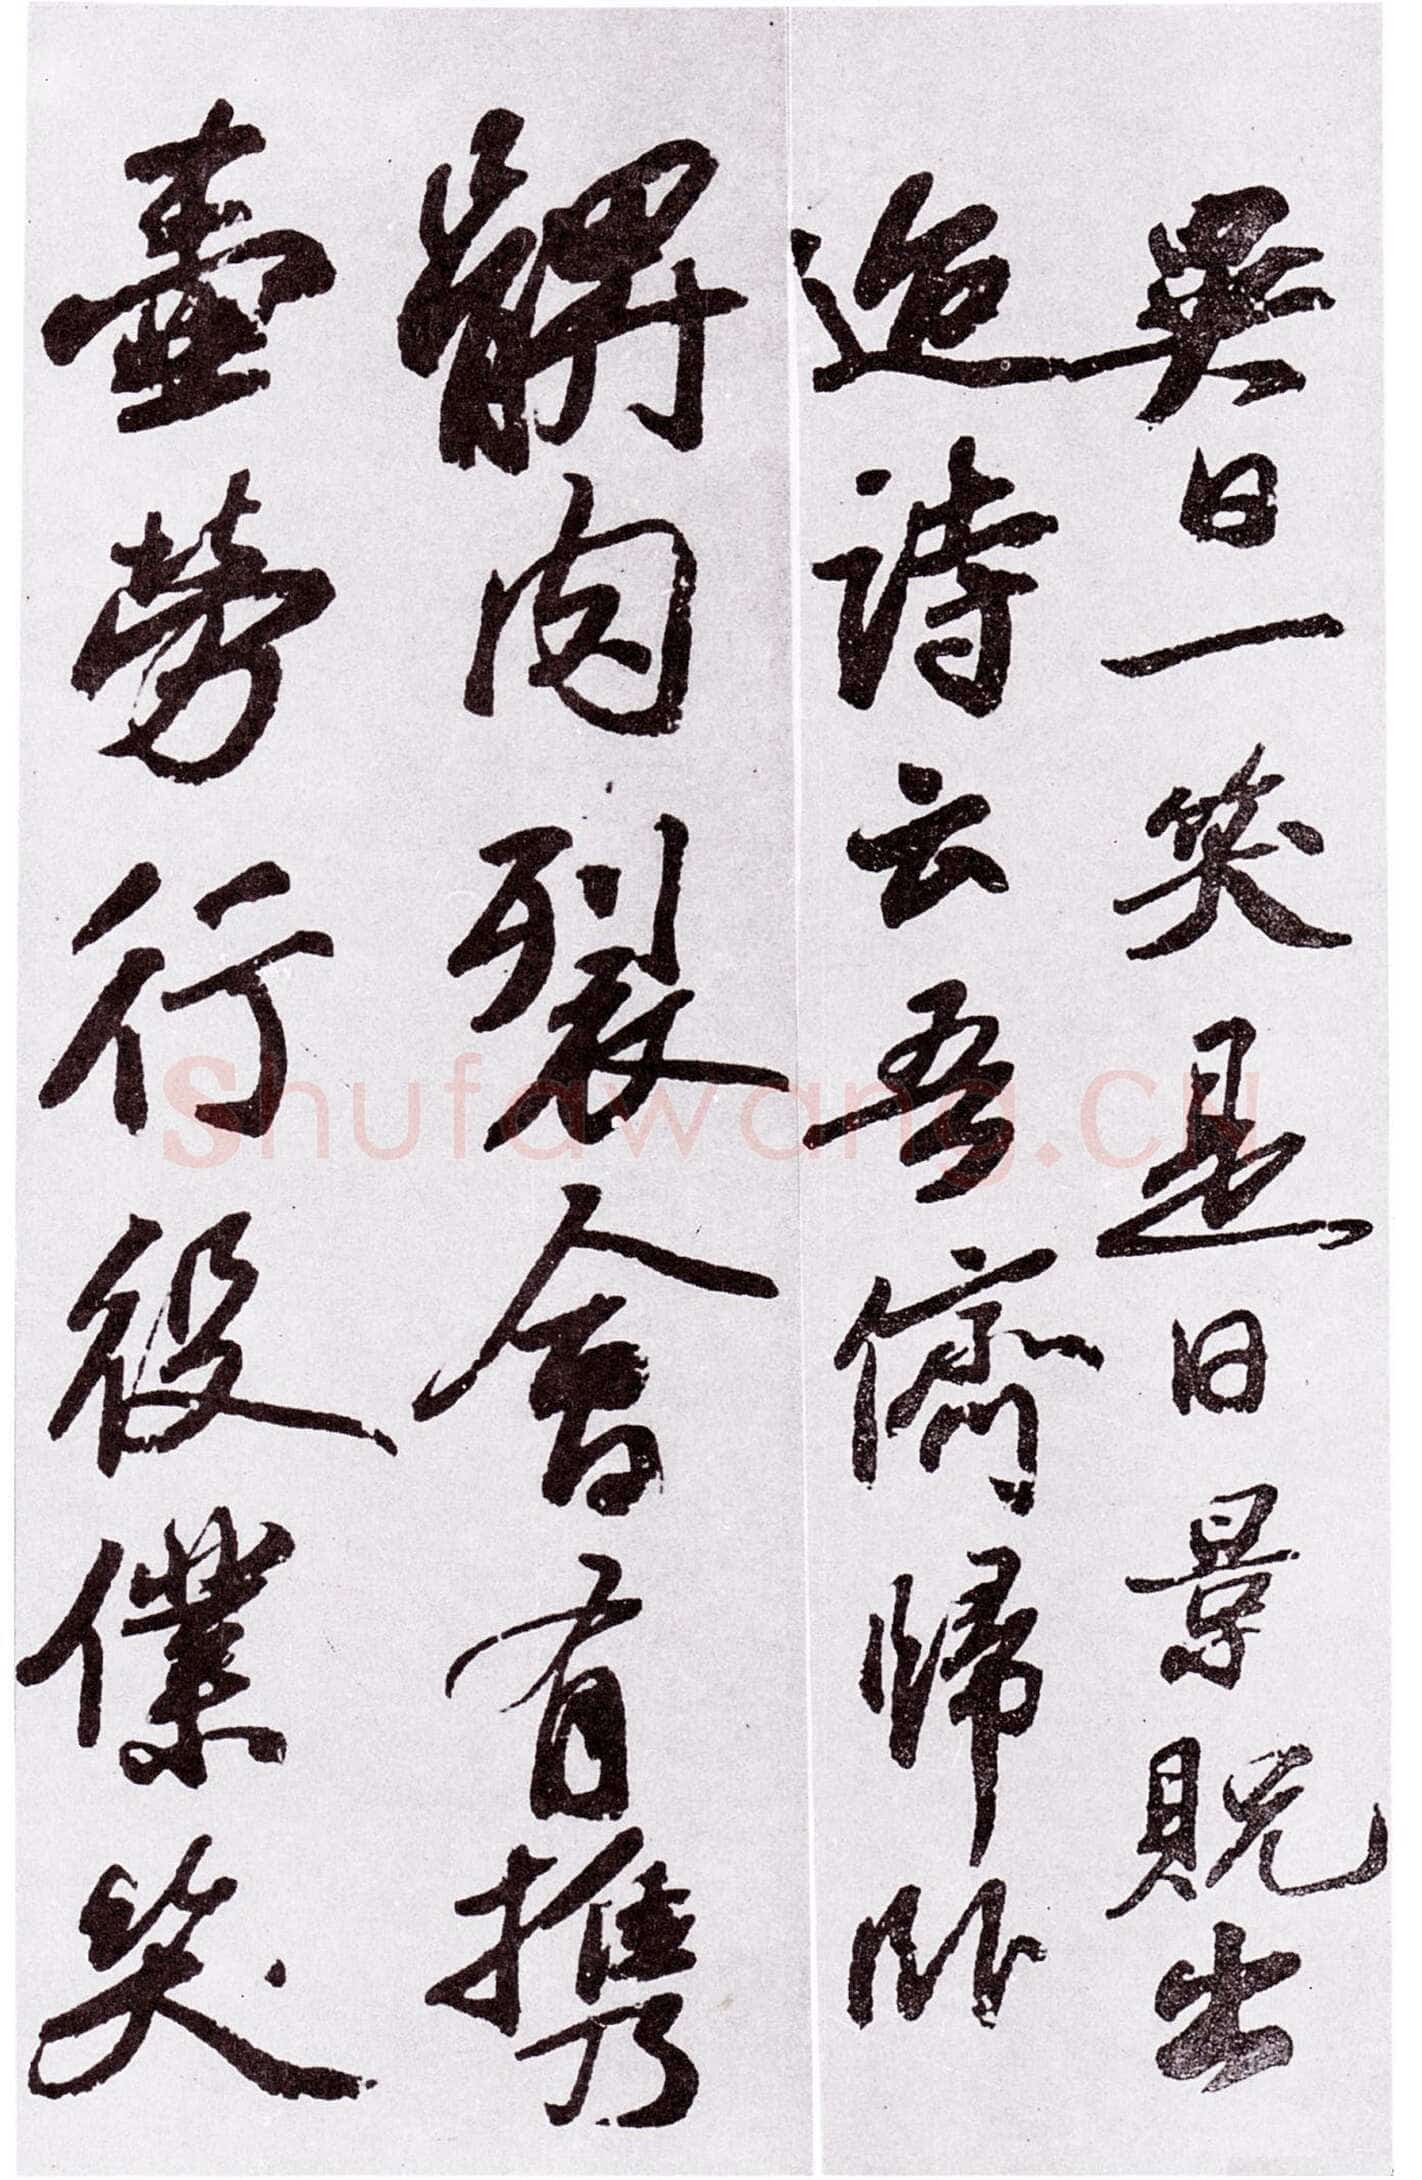 異日一笑是日景貺出
迩詩云吾儕歸卧
髀肉裂會有携
壺勞行役僕笑
shufawang.cn